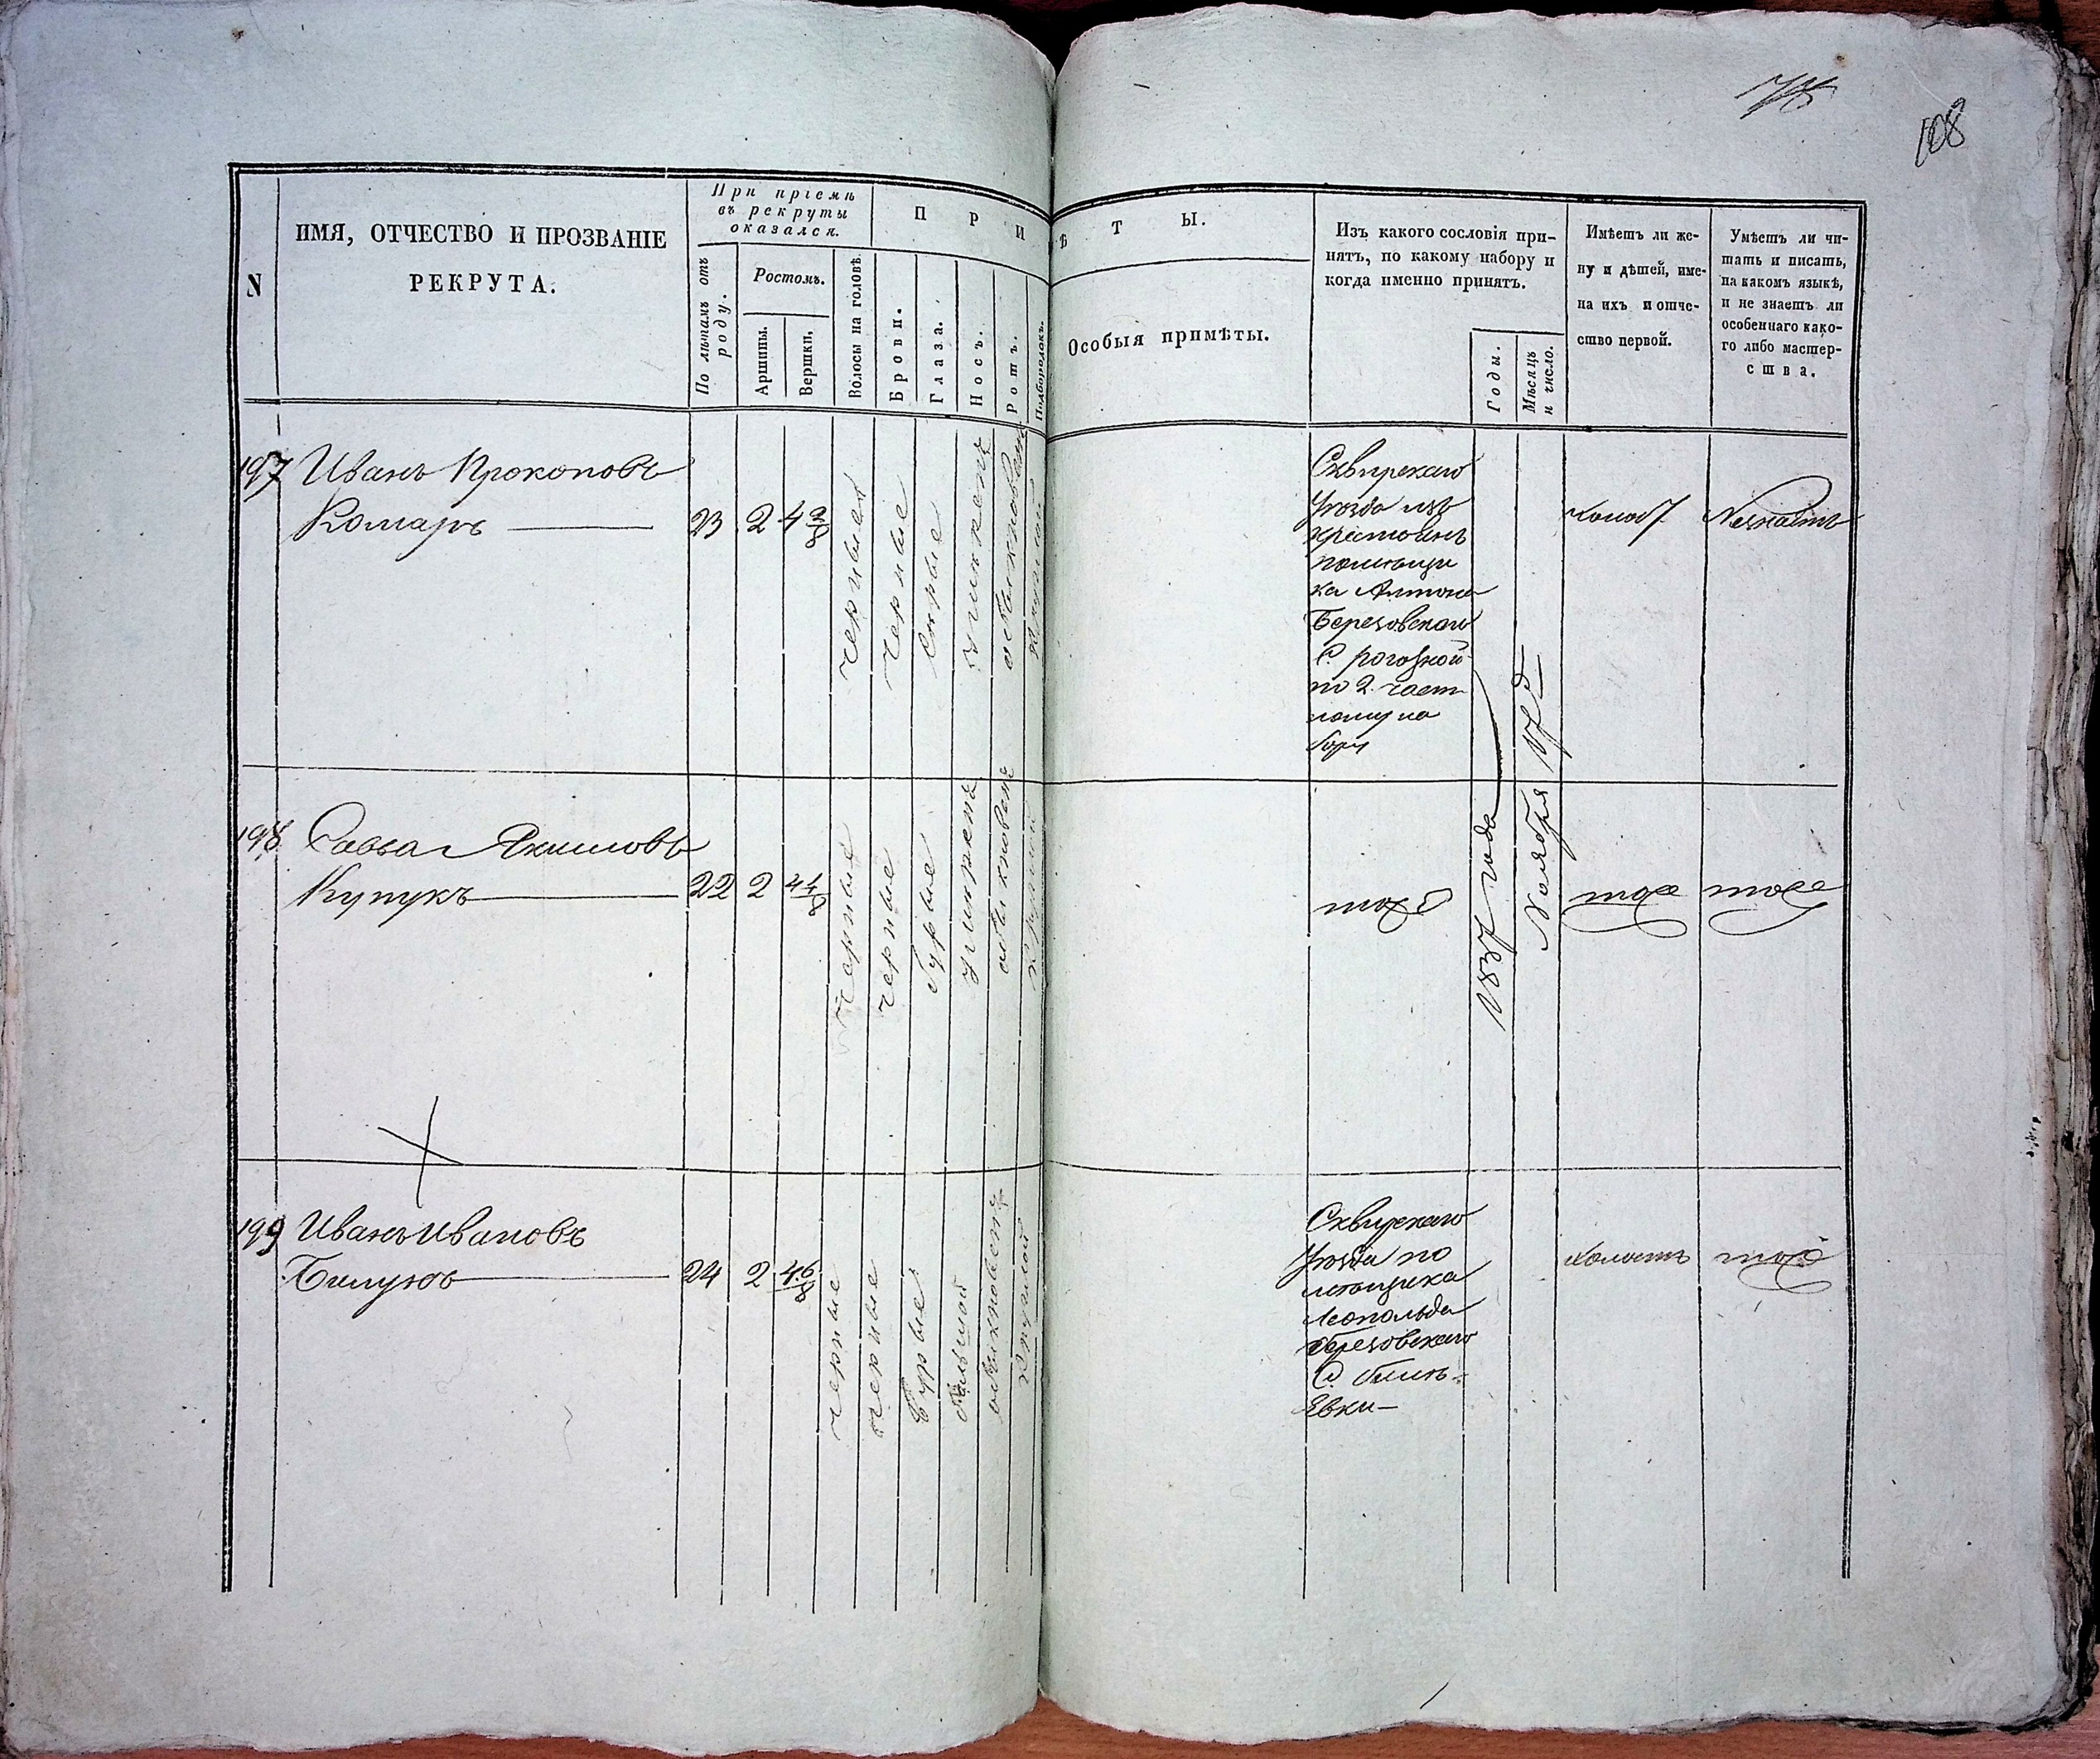 75
108
N
ИМЯ, ОТЧЕСТВО И ПРОЗВАНІЕ
РЕКРУТА.
При пріемѣ
въ рекруты
оказался.
По лѣтамъ отъ
роду.
Ростомъ.
Аршины.
Вершки.
П Р И
Волосы на головѣ.
Брови.
Глаза.
Носъ.
Ротъ.
Подбородокъ.
Ѣ Т Ы.
Особыя примѣты.
Изъ какого сословія при-
нятъ, по какому набору и
когда именно принятъ.
Годы.
Мѣсяцъ
и число.
Имѣетъ ли же-
ну и дѣтей, име-
на ихъ и отче-
ство первой.
Умѣетъ ли чи-
тать и писать,
на какомъ языкѣ,
и не знаетъ ли
особеннаго како-
го либо мастер-
ства.
197 Иванъ Прокоповъ
Комаръ
23 2 4 3/8
черные
черные
серые
умѣренъ
обыкновенъ
круглой
Сквирскаго
Уѣзда изъ
крестьянъ
помѣщи
ка Антона
Березовскаго
С. рогозной
по 2. част
ному на
бору
1837 года
Ноября 17д
холос.
Незнаетъ
198 Савва Якимовъ
Купукъ
22 2 4 4/8
черные
черные
бурые
умѣренъ
обыкновенъ
круглой
тоже
тоже
тоже
199 Иванъ Ивановъ
24 2 4 6/8
черные
черные
бурые
большой
обыкновенъ
круглой
Сквирскаго
Уѣзда по
мѣщика
Леопольда
березовскаго
холостъ
тоже